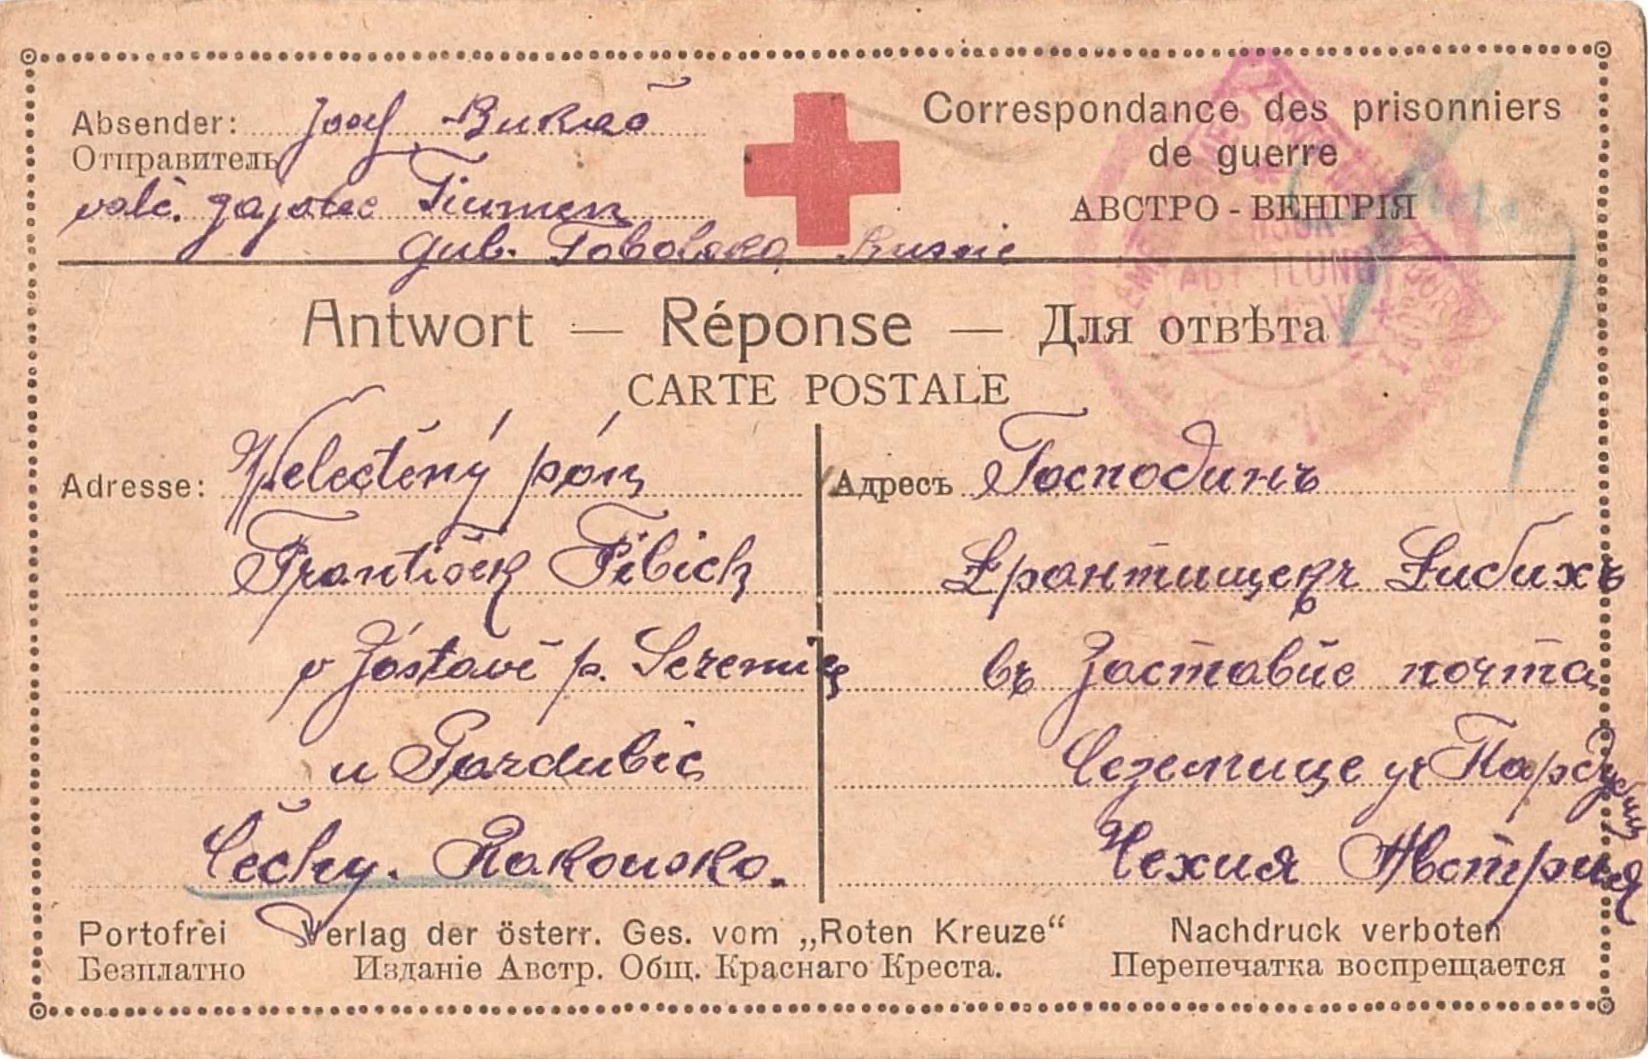 Correspondance des prisonniers
de guerre
АВСТРО - ВЕНГРІЯ
Absender: Josef
Отправитель
valč. zajatec Tiumen
gub. Tobolsko, Russie
Antwort — Réponse — Для отвѣта
CARTE POSTALE
Adresse: Velectěný pán
František Fibich
v Zástavě p. Sezemice
u Pardubic
Čechy. Rakousko.
Адресъ Господинъ
Франтишекъ Фибихъ
въ Заставѣе почта
Сеземице уч Пардубиц
Чехия Австрия
Portofrei Verlag der österr. Ges. vom „Roten Kreuze“ Nachdruck verboten
Безплатно Изданіе Австр. Общ. Краснаго Креста. Перепечатка воспрещается